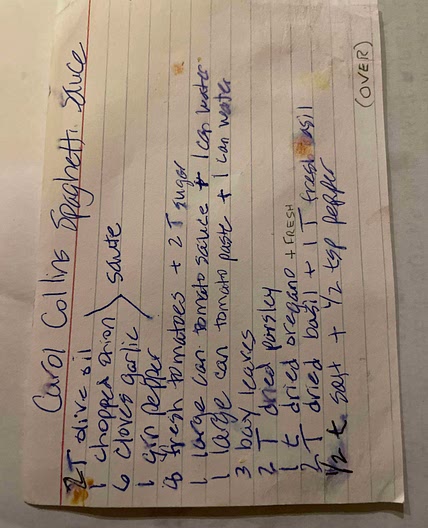 Carol Collins Spaghetti Sauce
2 T olive oil
1 chopped onion > saute
6 cloves garlic
1 grn pepper
8 fresh tomatoes + 2 T sugar
1 large can tomato sauce + 1 can water
1 large can tomato paste + 1 can water
3 bay leaves
2 T dried parsley
1 t dried oregano + FRESH
2 T dried basil + 1 T fresh basil
1/2 t. salt + 1/2 tsp pepper
(OVER)